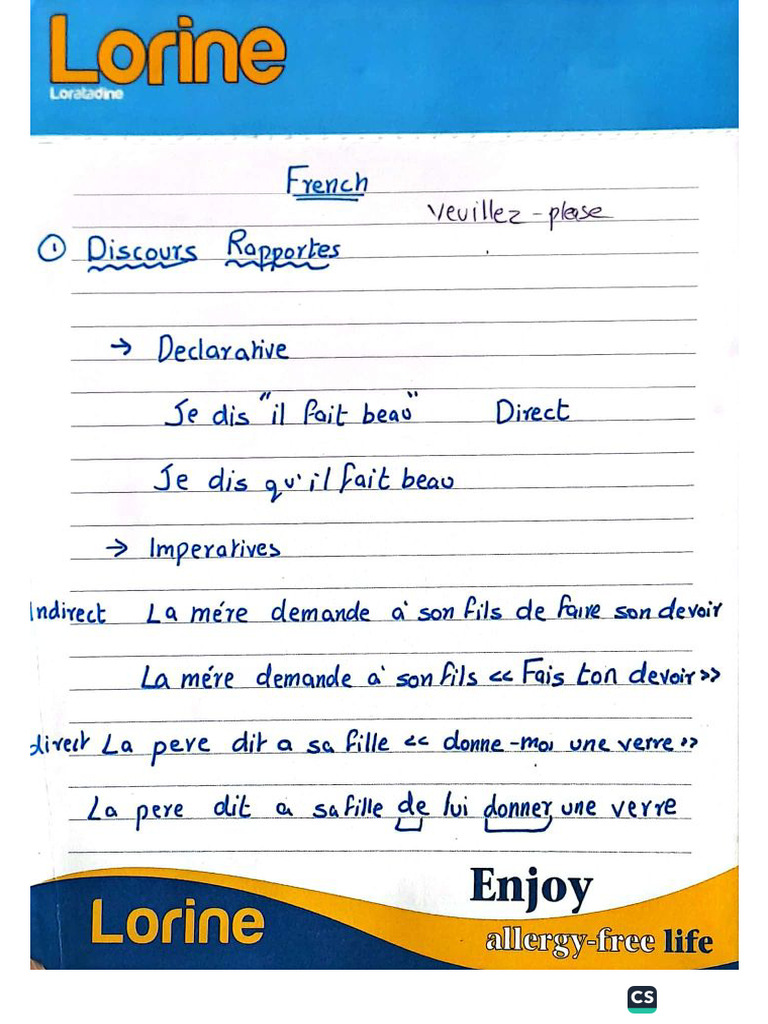 Lorine
Loratadine
French
Veuillez - please
① Discours Rapportes
→ Declarative
Je dis "il fait beau" Direct
Je dis qu'il fait beau
→ Imperatives
Indirect La mére demande a' son fils de faire son devoir
La mére demande a' son fils << Fais ton devoir >>
direct La pere dit a sa fille << donne-moi une verre >>
La pere dit a sa fille de lui donner une verre
Lorine
Enjoy
allergy-free life
CS